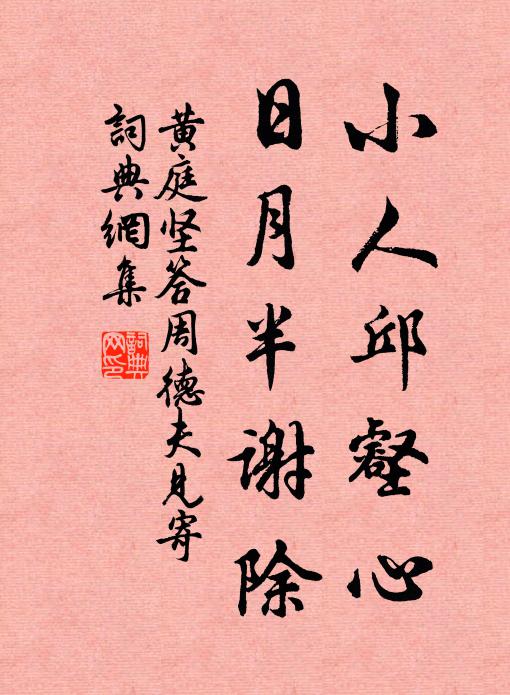 小人邱壑心
日月半谢除
黄庭坚答周德夫见寄
詞典網集
詞典网印